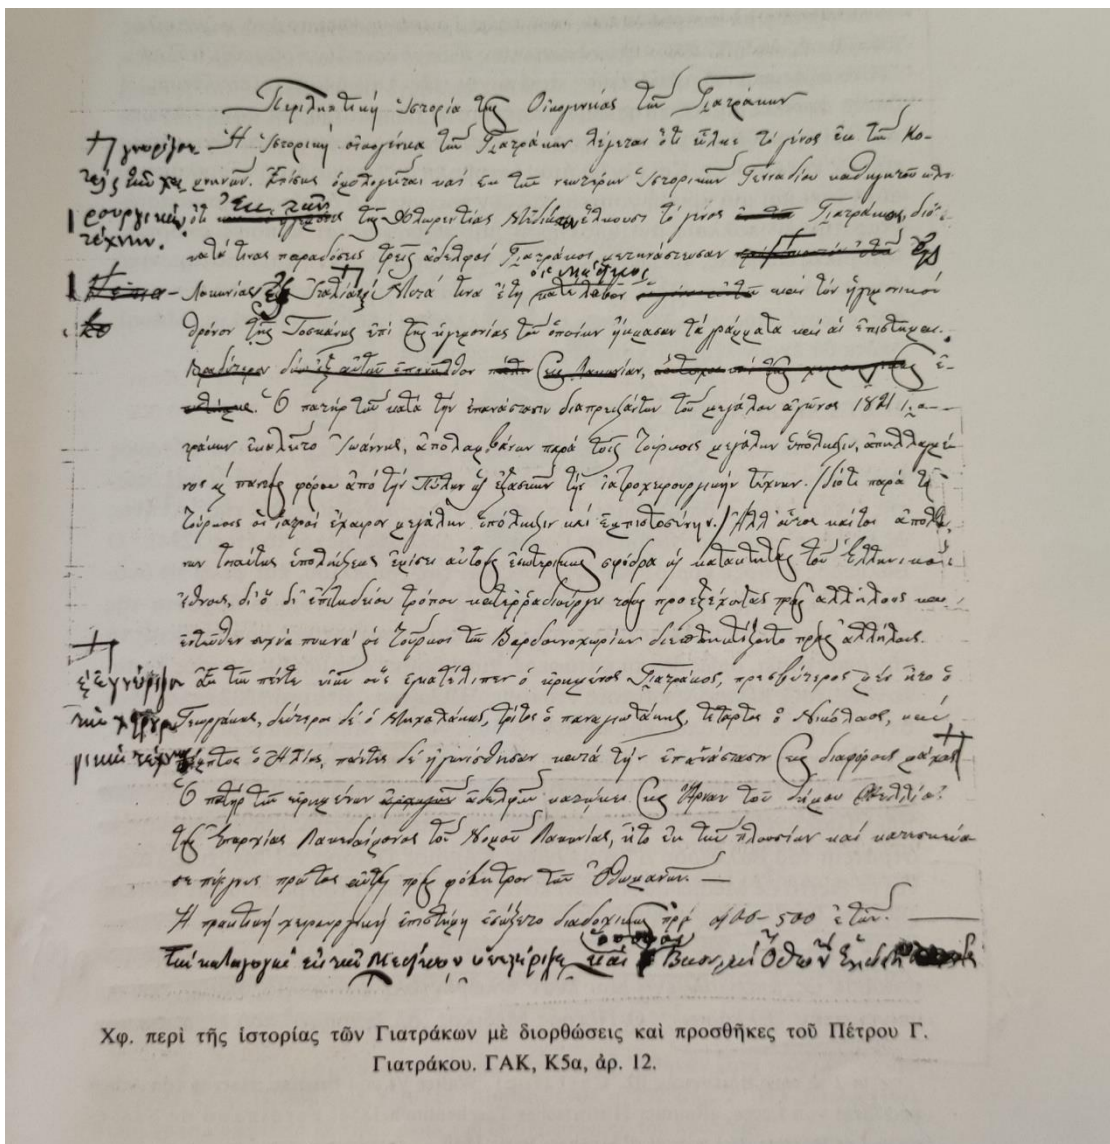 Περιληπτική Ἱστορία τῆς Οἰκογενείας τῶν Γιατράκων
Ἡ Ἱστορική οἰκογένεια τῶν Γιατράκων λέγεται ὅτι εἷλκε τό γένος ἐκ τῶν Κο-
μνηνῶν. Ἐπίσης ὁμολογεῖται καί ἐκ τῶν νεωτέρων Ἱστορικῶν Γενναδίου καθηγητοῦ
ὅτι Ἐκ τῶν τῆς Φλωρεντίας ἕλκουσι τό γένος Γιατράκος, διό-
κατά τινας παραδόσεις τρεῖς ἀδελφοί Γιατράκοι μετηνάστευσαν
Λακωνίας Μετά τινα ἔτη καί τόν ἡγεμονικόν
θρόνον τῆς Τοσκάνης ἐπί τῆς ἡγεμονίας τῶν ὁποίων ἤκμασαν τά γράμματα καί αἱ ἐπιστῆμαι.
Βραδύτερον ἐξ αὐτῶν ἐπανῆλθον εἰς Λακωνίαν,
Ὁ πατήρ τῶν κατά τήν ἐπανάστασιν διαπρεψάντων τοῦ μεγάλου ἀγῶνος 1821 Για-
τράκων ἐκαλεῖτο Ἰωάννης, ἀπολαμβάνων παρά τοῖς Τούρκοις μεγάλην ὑπόληψιν, ἀπηλλαγμέ-
νος παντός φόρου ἀπό τήν Πύλην ὡς ἐξασκῶν τήν ἰατροχειρουργικήν τέχνην. (διότι παρά τοῖς
Τούρκοις οἱ ἰατροί ἔχαιρον μεγάλην ὑπόληψιν καί ἐμπιστοσύνην.) Ἀλλ' οὗτος καίτοι ἀπολαύ-
ων τοιαύτης ὑπολήψεως ἐμίσει αὐτούς ἐσωτερικῶς σφόδρα ὡς κατακτητάς τοῦ Ἑλληνικοῦ
ἔθνους, δι' ὅ δι' ἐπιτηδείου τρόπου τούς προεξέχοντας πρός ἀλλήλους καί
ἐντεῦθεν συχνά πυκνά οἱ Τοῦρκοι τῶν Βαρδουνοχωρίων διεπληκτίζοντο πρός ἀλλήλους.
Ἐκ τῶν πέντε υἱῶν οὕς ἐγκατέλιπεν ὁ εἰρημένος Γιατράκος, πρεσβύτερος μέν ἦτο ὁ
Γεωργάκης, δεύτερος δέ ὁ Μιχαλάκης, τρίτος ὁ Παναγιωτάκης, τέταρτος ὁ Νικόλαος, καί
πέμπτος ὁ Ἠλίας, πάντες δέ ἠγωνίσθησαν κατά τήν ἐπανάστασιν εἰς διαφόρους μάχας
Ὁ πατήρ τῶν εἰρημένων ἀδελφῶν κατῴκει εἰς Ἄρναν τοῦ δήμου
τῆς Ἐπαρχίας Λακεδαίμονος τοῦ Νομοῦ Λακωνίας, ἦτο ἐκ τῶν πλουσίων καί κατεσκεύα-
σε πύργους πρῶτος πρός φόβητρον τῶν Ὀθωμανῶν. —
Ἡ πρακτική χειρουργική ἐπιστήμη ἐσώζετο διαδοχικῶς πρό 400-500 ἐτῶν.
τήν καταγωγήν ἐκ τῶν Μεδίκων καί ὁ Βασιλεύς Ὄθων
ἐγνώριζον
τήν χειρουρ-
γικήν τέχνην
Χφ. περὶ τῆς ἱστορίας τῶν Γιατράκων μὲ διορθώσεις καὶ προσθῆκες τοῦ Πέτρου Γ.
Γιατράκου. ΓΑΚ, Κ5α, ἀρ. 12.